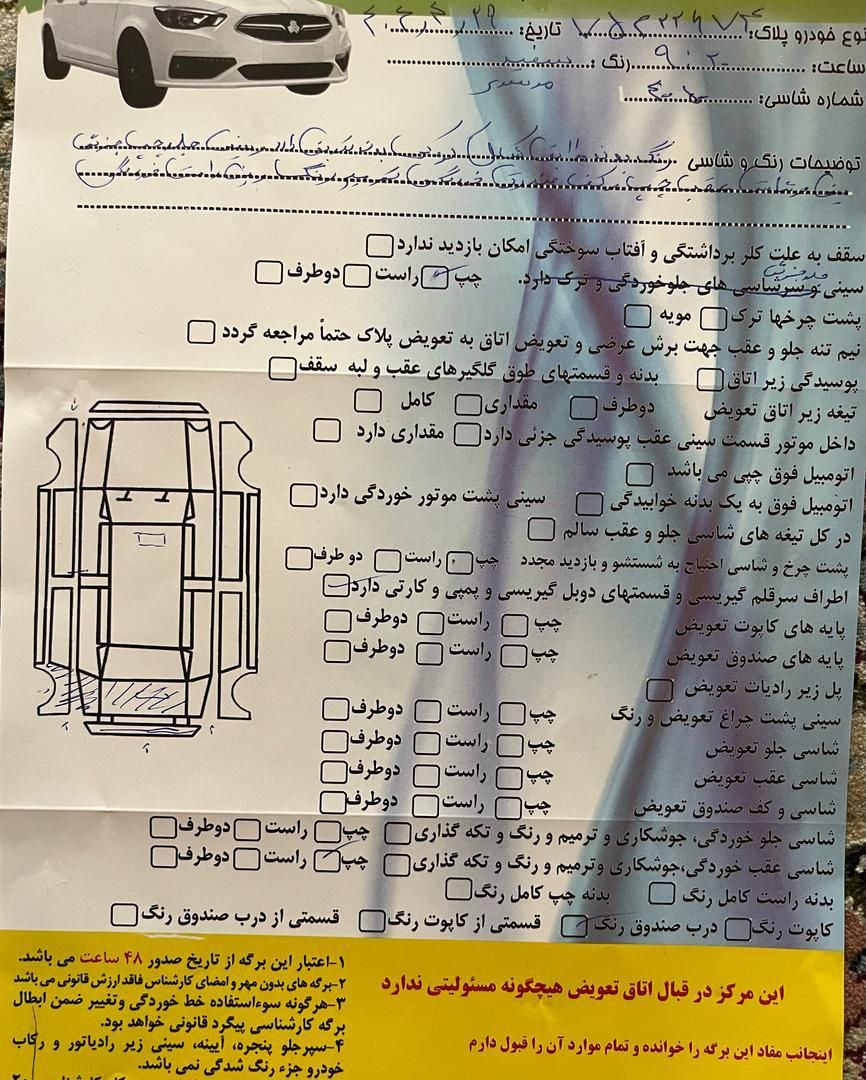 نوع خودرو پلاک: تاریخ:
ساعت: ۹:۲۰ رنگ: سفید
شماره شاسی:
توضیحات رنگ و شاسی
سقف به علت کلر برداشتگی و آفتاب سوختگی امکان بازدید ندارد
سینی و سرشاسی های جلوخوردگی و ترک دارد. چپ راست دوطرف
پشت چرخها ترک مویه
نیم تنه جلو و عقب جهت برش عرضی و تعویض اتاق به تعویض پلاک حتماً مراجعه گردد
پوسیدگی زیر اتاق بدنه و قسمتهای طوق گلگیرهای عقب و لبه سقف
تیغه زیر اتاق تعویض دوطرف مقداری کامل
داخل موتور قسمت سینی عقب پوسیدگی جزئی دارد مقداری دارد
اتومبیل فوق چپی می باشد
اتومبیل فوق به یک بدنه خوابیدگی سینی پشت موتور خوردگی دارد
در کل تیغه های شاسی جلو و عقب سالم
پشت چرخ و شاسی احتیاج به شستشو و بازدید مجدد چپ راست دو طرف
اطراف سرقلم گیربسی و قسمتهای دوبل گیربسی و پمپی و کارتی دارد
پایه های کاپوت تعویض چپ راست دوطرف
پایه های صندوق تعویض چپ راست دوطرف
پل زیر رادیات تعویض
سینی پشت چراغ تعویض و رنگ چپ راست دوطرف
شاسی جلو تعویض چپ راست دوطرف
شاسی عقب تعویض چپ راست دوطرف
شاسی و کف صندوق تعویض چپ راست دوطرف
شاسی جلو خوردگی، جوشکاری و ترمیم و رنگ و تکه گذاری چپ راست دوطرف
شاسی عقب خوردگی،جوشکاری وترمیم و رنگ و تکه گذاری چپ راست دوطرف
بدنه راست کامل رنگ بدنه چپ کامل رنگ
کاپوت رنگ درب صندوق رنگ قسمتی از کاپوت رنگ قسمتی از درب صندوق رنگ
این مرکز در قبال اتاق تعویض هیچگونه مسئولیتی ندارد
اینجانب مفاد این برگه را خوانده و تمام موارد آن را قبول دارم
۱-اعتبار این برگه از تاریخ صدور ۴۸ ساعت می باشد.
۲-برگه های بدون مهر و امضای کارشناس فاقد ارزش قانونی می باشد
۳-هرگونه سوءاستفاده خط خوردگی وتغییر ضمن ابطال
برگه کارشناسی پیگرد قانونی خواهد بود.
۴-سپرجلو پنجره، آیینه، سینی زیر رادیاتور و رکاب
خودرو جزء رنگ شدگی نمی باشد.